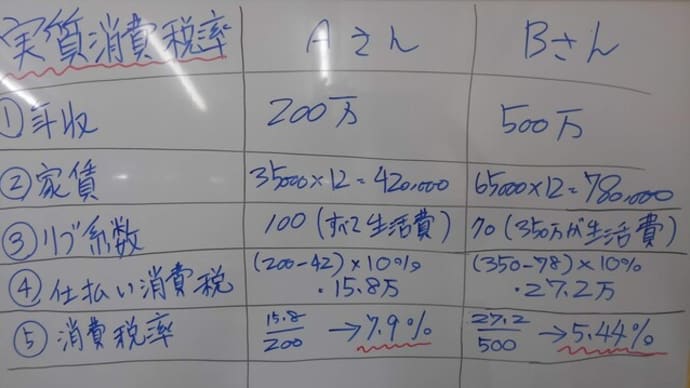 実質消費税率 Aさん Bさん
①年収 200万 500万
②家賃 35000×12=420,000 65000×12=780,000
③リブ系数 100(すべて生活費) 70(350万が生活費)
④仕払い消費税 (200-42)×10% (350-78)×10%
・15.8万 ・27.2万
⑤消費税率 15.8/200 →7.9% 27.2/500 →5.44%